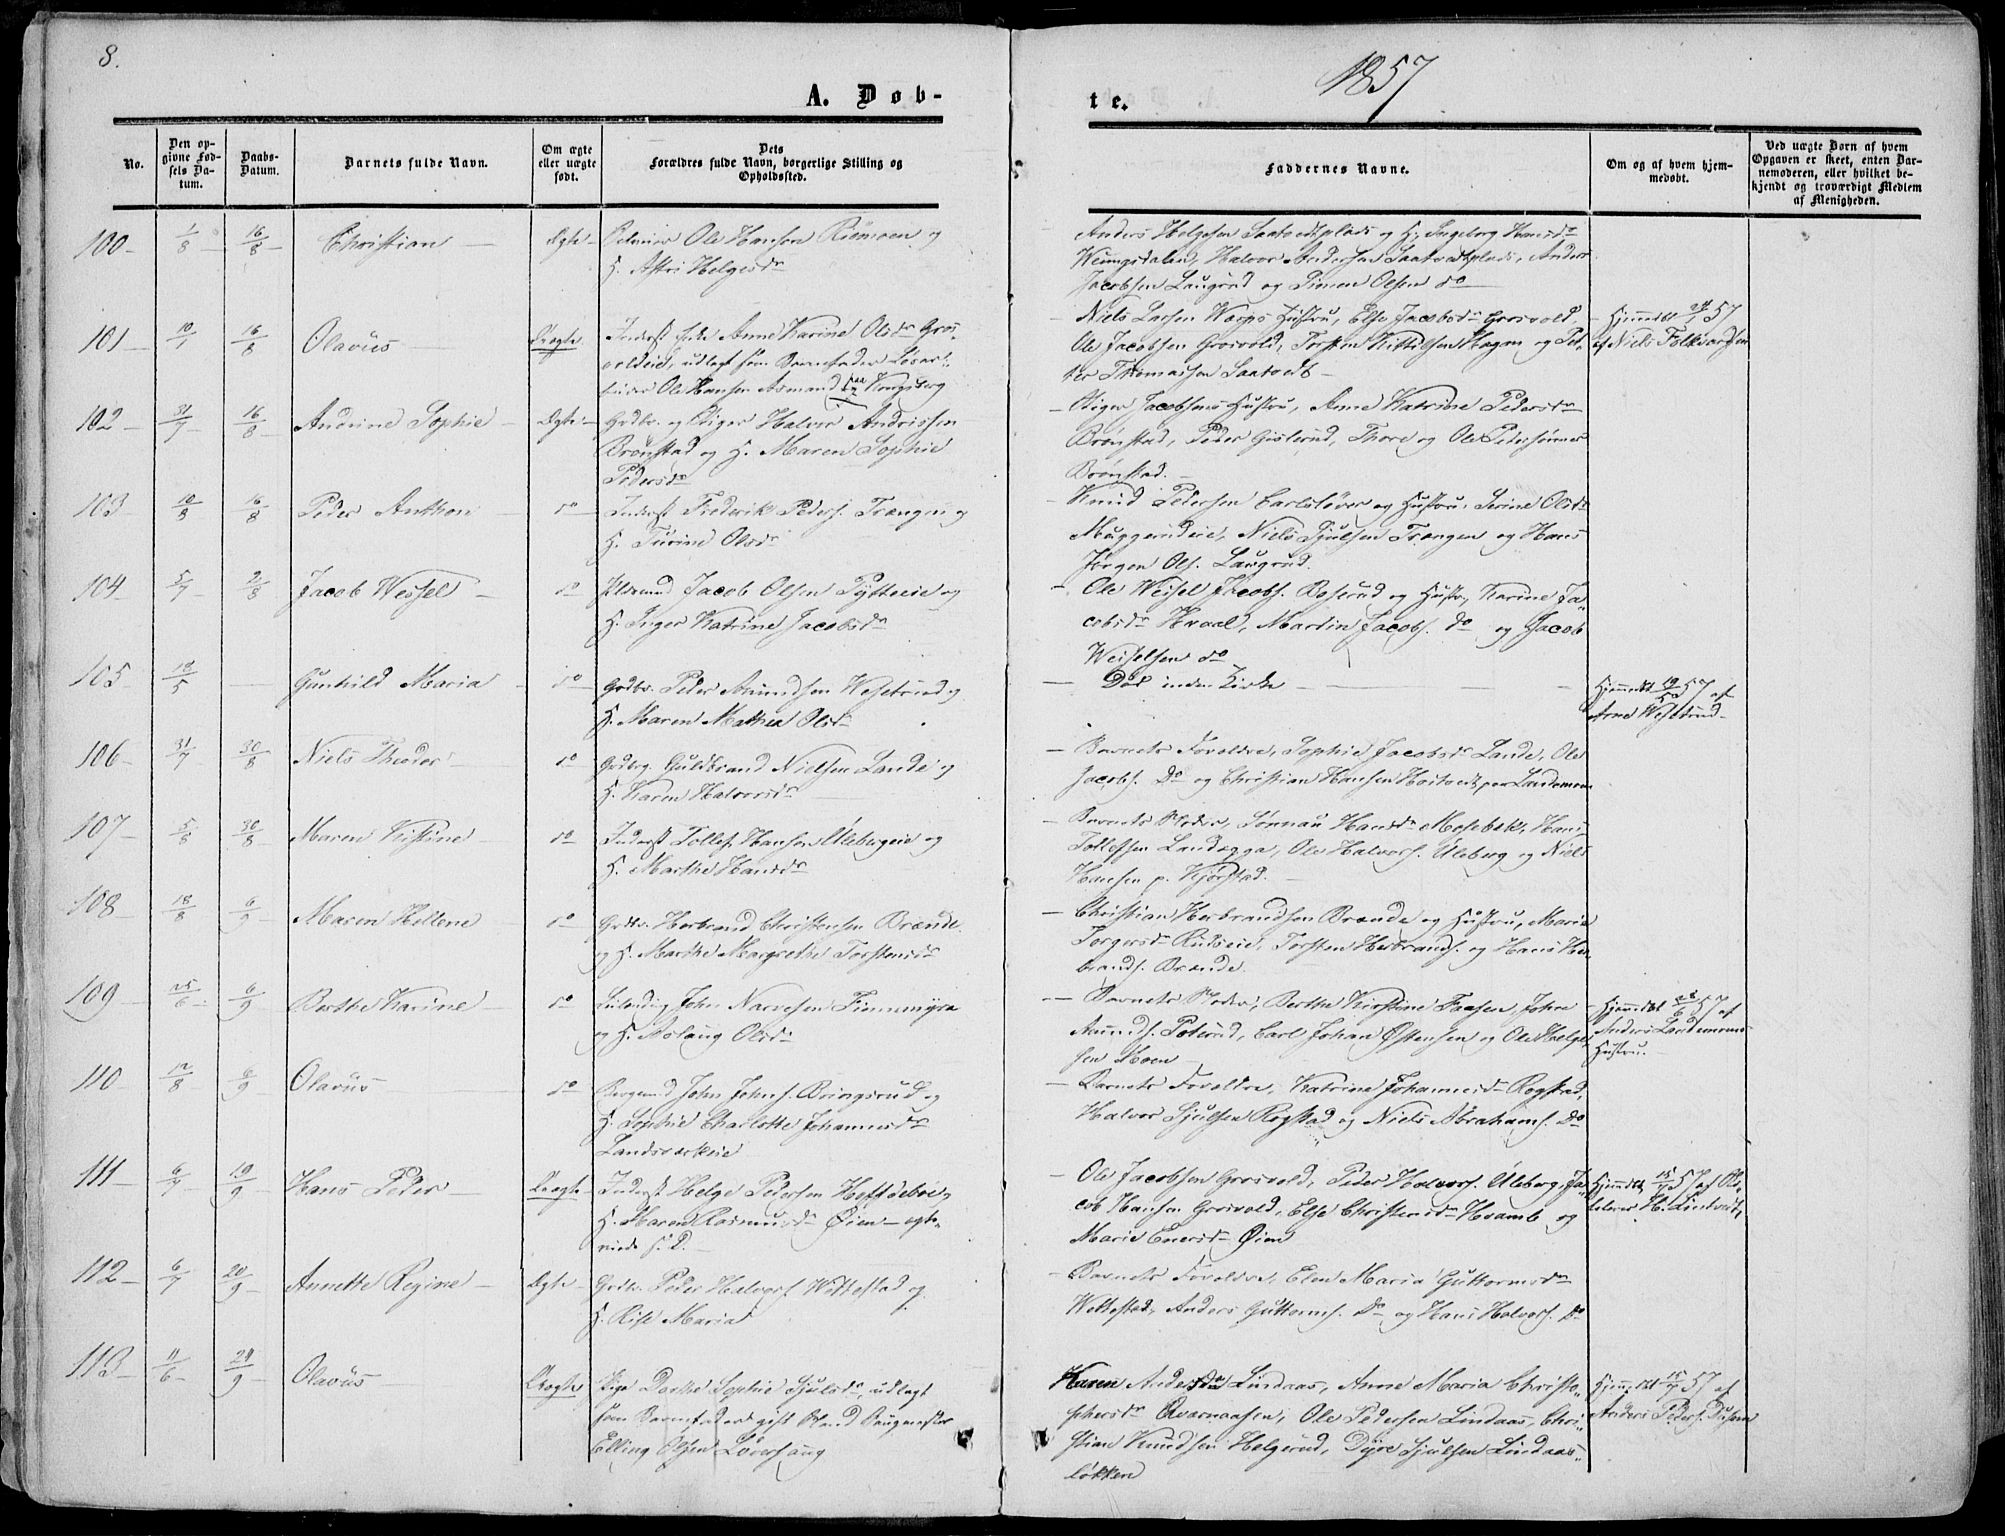 8.
1857
A. Døb-
te.
No.
Den op-
givne Fød-
sels Da-
tum.
Daabs-
Datum.
Barnets fulde Navn.
Om ægte
eller uægte
født.
Dets
Forældres fulde Navn, borgerlige Stilling og
Opholdssted.
Faddernes Navne.
Om og af hvem hjem-
medøbt.
Ved uægte Børn af hvem
Opgaven er skeet, enten Bar-
nemoderen, eller hvilket be-
kjendt og troværdigt Medlem
af Menigheden.
100 1/8 16/8 Christian Ægte Ole Hansen Riemoen og
H. Astri Helgesdr
Anders Helgesen Saatvedtplads og H. Ingeborg Hansdr
Halvor Andersen Saatvedtplads, Anders
Jacobsen Laugrud og Simon Olsen do
101 10/7 16/8 Olavus Uægte Inderst Anne Karine Olsdr Gros-
voldeie, udlagt som Barnefader Løsar-
beider Ole Hansen Aasmund paa Kongsberg
Niels Larsen Hustru, Else Jacobsdr Grosvold,
Ole Jacobsen Grosvold, Torsten Kittilsen Hagen og Pet-
ter Thomassen Saatvedt
Hjemmedøbt 57
af Niels Folkvordsen
102 31/7 16/8 Andrine Sophie Ægte Grdbr. og Stiger Halvor Andrissen
Brønstad og H. Maren Sophie
Pedersdr
Stiger Jacobsens Hustru, Anne Katrine Pedersdr
Brønstad, Peder Gislerud, Thore og Ole Pedersønner
Brønstad.
103 10/8 16/8 Peder Anthon do Inderst Frederik Peders. Trængen og
H. Turine Olsdr
Knud Pedersen og Hustru, Serine Olsdr
Muggerudeie, Niels Sjulsen Trængen og Hans
Jørgen Ols. Laugrud.
104 5/7 2/8 Jacob Wessel do Jacob Olsen Pytteeie og
H. Inger Katrine Jacobsdr
Ole Weisel Jacobs. Boserud og Hustr., Karine Ja-
cobsdr Hraal, Martin Jacobs. do og Jacob
Weiselsen do
105 10/5 Gunhild Maria do Grdbr. Peder Amundsen Weseterud og
H. Maren Mathea Olsdr
Død inden Kirke
Hjemmedøbt 19/5 57 af
Arne Weseterud
106 31/7 30/8 Niels Theodor do Grdbrg. Guldbrand Nielsen Lande og
H. Karen Halvorsdr
Barnets Forældre, Sophie Jacobsdr Lande, Ole
Jacobs. Do og Christian Hansen Hostvedt, per Landemoen
107 5/8 30/8 Maren Kistine do Inderst Tollef Hansen Ulebergeie og
H. Marthe Hansdr
Barnets Moder, Sønnau Hansdr Mosebæk, Hans
Tollefsen Landegga, Ole Halvors. Uleberg og Niels
Hansen p. Kjørstad.
108 18/8 6/9 Maren Hellene do Grdbr. Herbrand Christensen Brænde
og H. Marthe Margrethe Torstensdr
Christian Herbrandsen Brænde og Hustru, Marie
Torgersdr Rudseie, Torsten Herbrands. og Hans Her-
brands. Brænde.
109 25/6 6/9 Berthe Karine do John Narvesen Finnemyra
og H. Aslaug Olsdr
Barnets Moder, Berthe Kirstine Faasen, John
Amunds. Poterud, Carl Johan Østensen og Ole Helge-
sen Moen
Hjemmedøbt 28/6 57 af
Anders Landemoens
Hustru.
110 12/8 6/9 Olavus do Bergmand John Johns. Bringsrud og
H. Sophie Charlotte Johannesdr
Landsværkeie
Barnets Forældre, Katrine Johannesdr Rogstad,
Halvor Sjulsen Rogstad og Niels Abrahams. Do
111 6/7 19/9 Hans Peder Uægte Inderst Helge Pedersen Hostdebøe,
H. Maren Rasmusdr Øien — egte-
viede s. D.
Ole Jacobsen Grosvold, Peder Halvors. Uleberg, Ja-
cob Hansen Grosvold, Else Christensdr Hvamb og
Marie Enersdr Øien
Hjemmedøbt 15/7 57 af Sko-
lelærer H. Lindvedt
112 6/7 20/9 Annette Regine Ægte Grdbr. Peder Halvors. Wettestad og
H. Rise Maria
Barnets Forældre, Elen Maria Guttormsdr
Wettestad, Anders Guttorms. Do og Hans Halvors. Do
113 11/6 29/9 Olavus Uægte Pige Dorthe Sophie Sjulsdr, udlagt
som Barnefader gift Mand Baugmester
Elling Olsen Løvershaug
Karen Andersdr Lindaas, Anne Maria Christo-
phersdr Qvarnaasen, Ole Pedersen Lindaas, Chri-
stian Knudsen Helgerud, Dyre Sjulsen Lindaas-
løkken
Hjemmedøbt 15/7 57 af
Anders Peders.